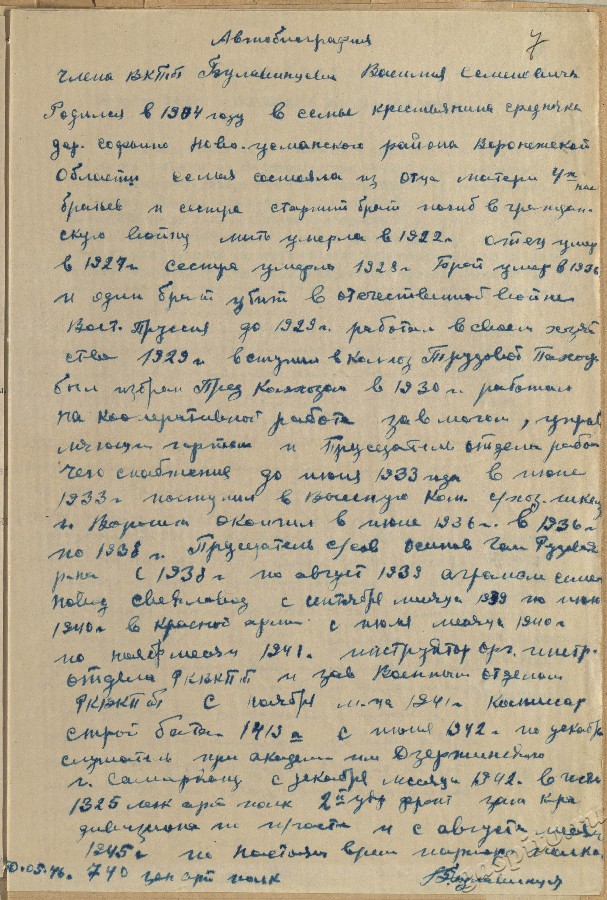 Автобиография 7
члена ВКПб Василия Семеновича
Родился в 1904 году в семье крестьянина середняка
дер. Ново-усманского района Воронежской
Области семья состояла из отца матери
братьев и сестра старший брат погиб в граждан-
скую войну мать умерла в 1922 г. отец умер
в 1927 г. сестра умерла 1928 г. брат умер в 1936
и один брат убит в отечественной войне
Вост. Пруссия до 1929 г. работал в своем хозяй
стве 1929 г. вступил в колхоз Трудовой Пахарь
был избран Пред Колхоза в 1930 г. работал
на кооперативной работе зав магом, управ
ляющим и Председателем отдела рабо
чего снабжения до июня 1933 года в июне
1933 г. поступил в Высшую Ком. с/хоз. школу
г. Воронеж окончил в июне 1936 г. в 1936 г.
по 1938 г. Председатель
р-на с 1938 г. по август 1939 агроном
с сентября месяца 1939 по июнь
1940 г. в Красной армии с июля месяца 1940 г.
по ноябрь месяц 1941 г. инструктор орг. инстр.
отдела РКВКПб и зав Военным отделом
РКВКПб с ноября м-ца 1941 г. Комиссар
строй бата. 1413 с июня 1942 г. по декабрь
слушатель при академии им Дзержинского
г. Самарканд с декабря месяца 1942 г.
1325 арт полк 2й фронт
дивизиона по п/части и с августа месяца
1945 г. по настоящее время парторг полка
0.05.46 г. 740 арт полк